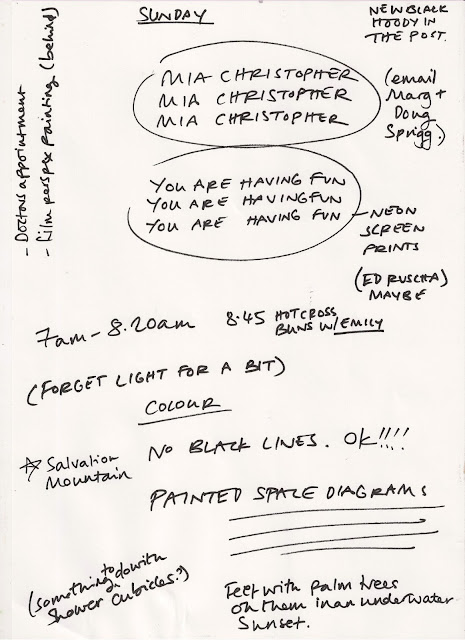 SUNDAY
NEW BLACK
HOODY IN
THE POST.
- Doctors appointment
- Film perspex painting (behind)
MIA CHRISTOPHER
MIA CHRISTOPHER
MIA CHRISTOPHER
(email
Marg +
Doug
Sprigg.)
YOU ARE HAVING FUN
YOU ARE HAVING FUN
YOU ARE HAVING FUN
- NEON
SCREEN
PRINTS
(ED RUSCHA)
MAYBE
7am - 8.20am
8.45 HOT CROSS
BUNS W/ EMILY
(FORGET LIGHT FOR A BIT)
COLOUR
NO BLACK LINES. OK!!!!
☆ Salvation
Mountain
PAINTED SPACE DIAGRAMS
(something to do with
shower cubicles?)
Feet with palm trees
on them in an underwater
Sunset.